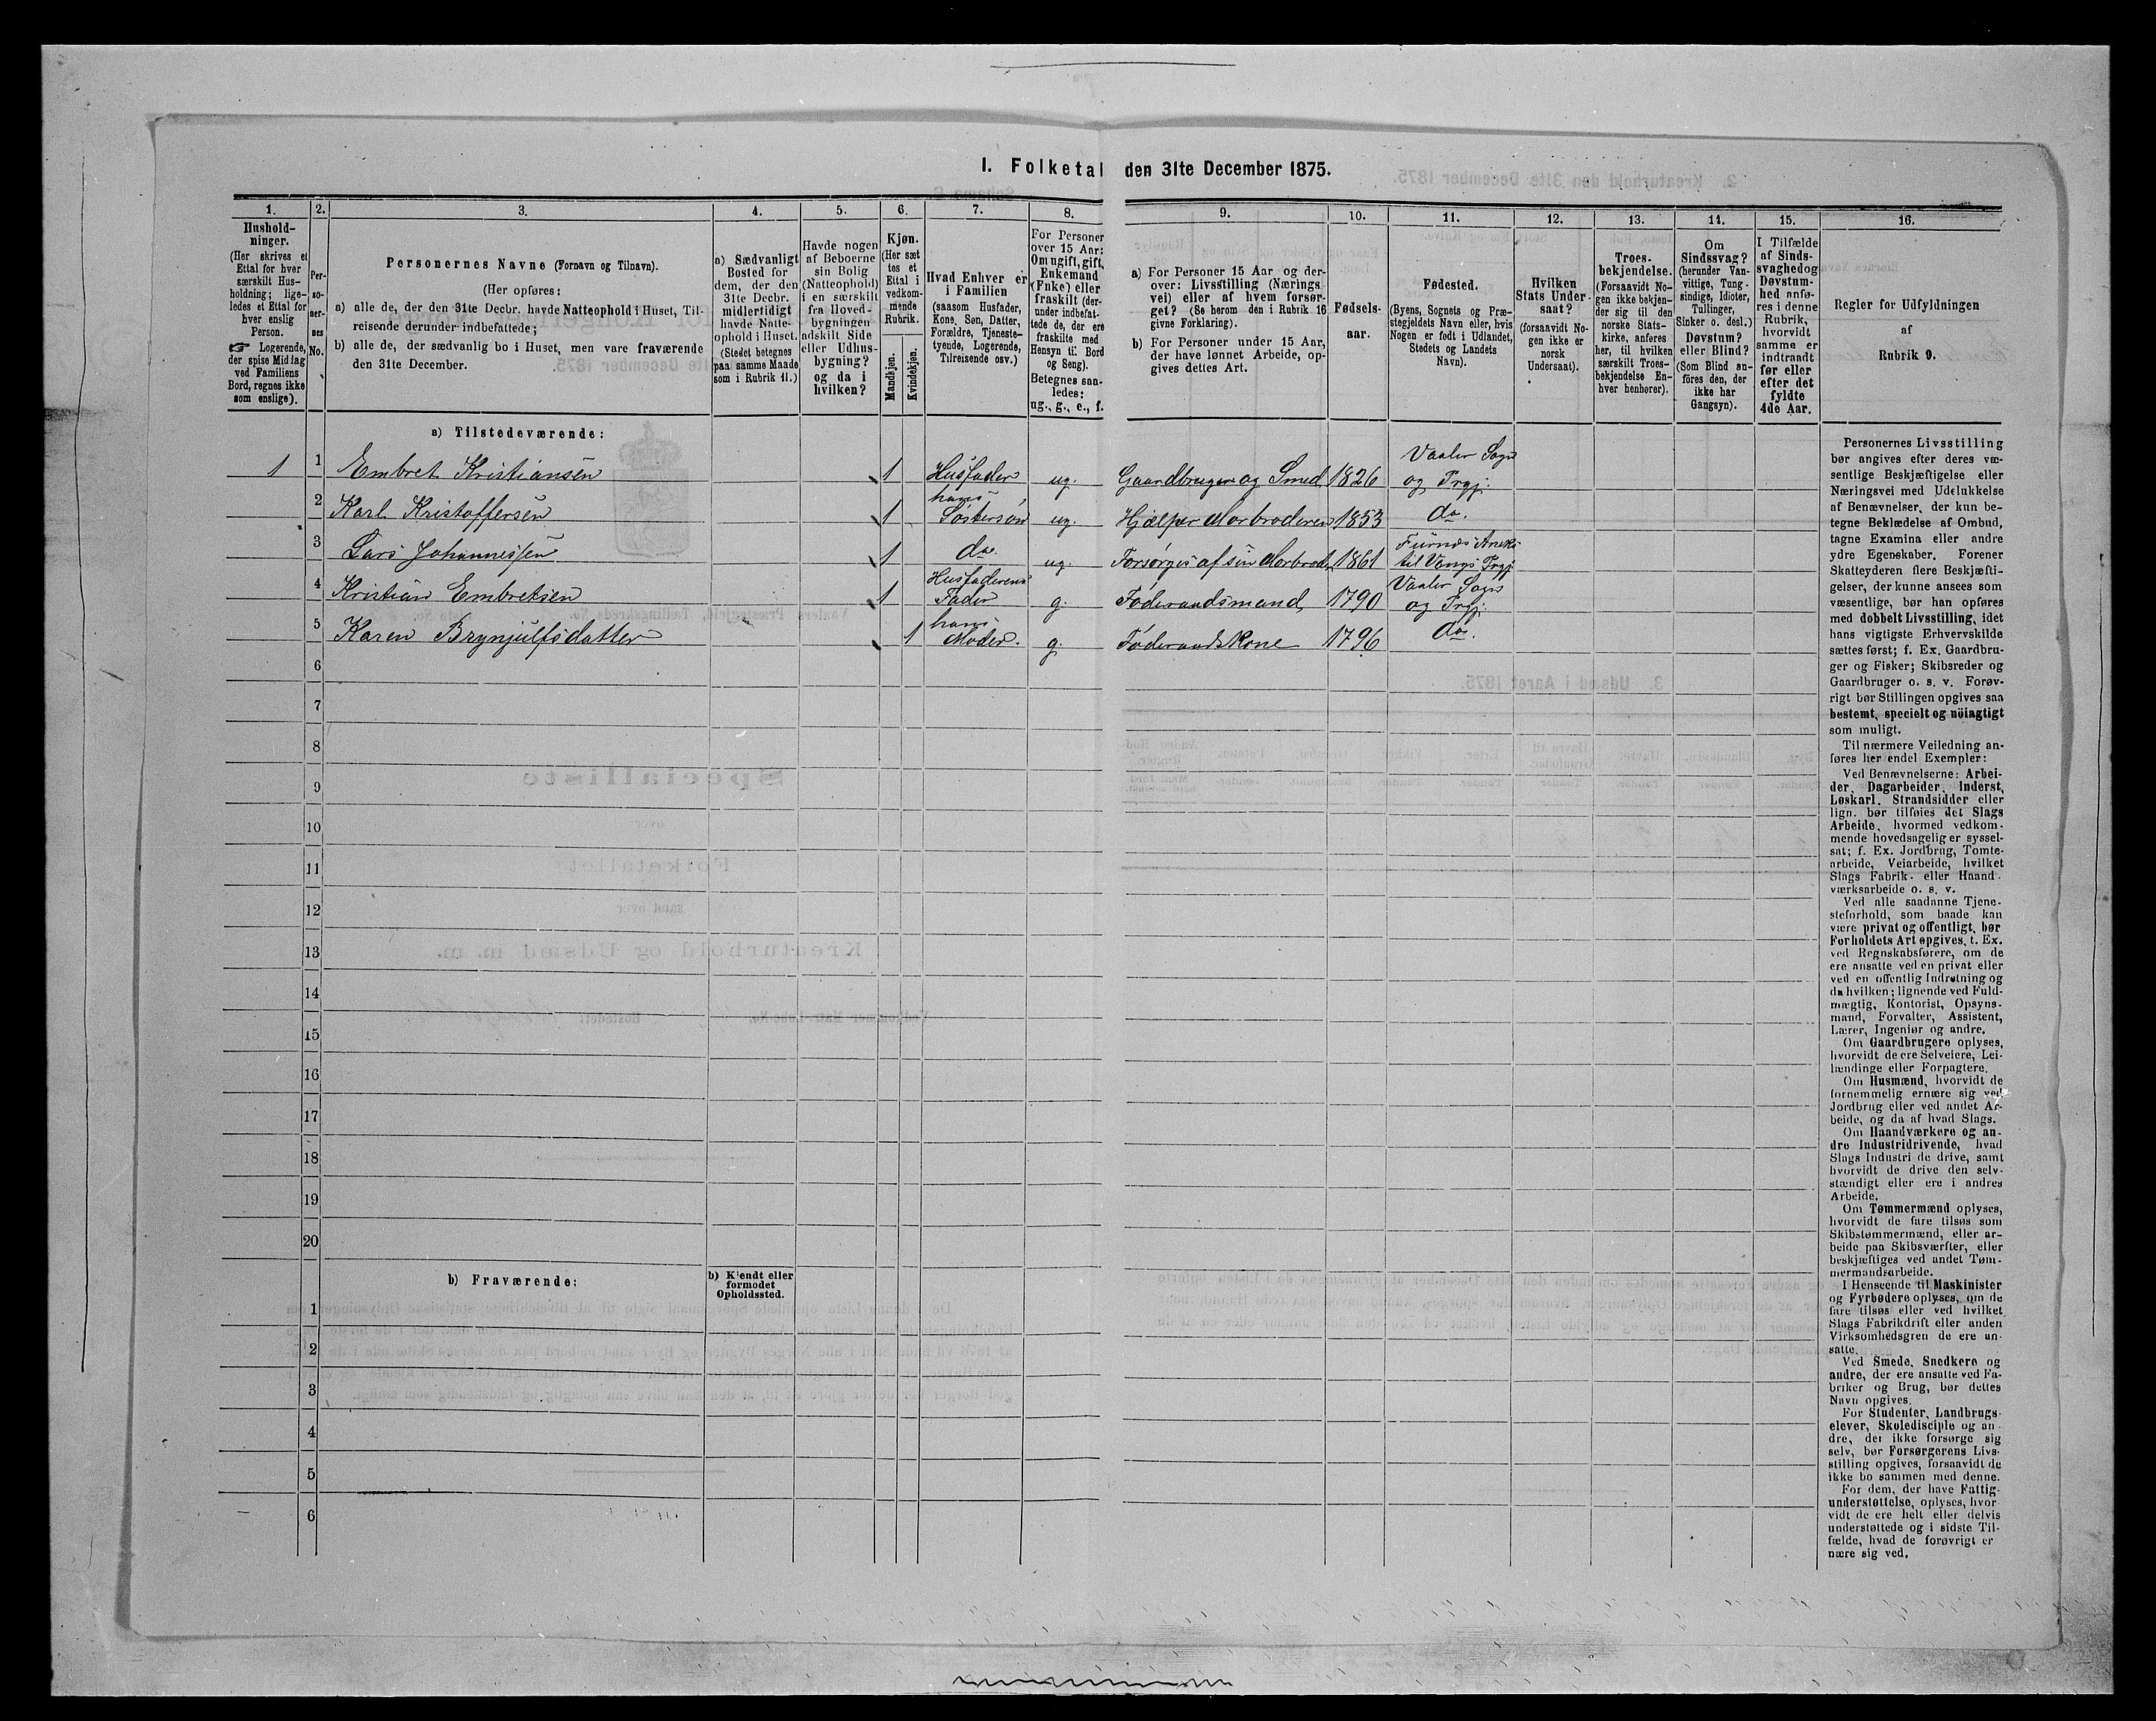 I. Folketal den 31te December 1875.
1.
Hushold-
ninger.
(Her skrives et
Ettal for hver
særskilt Hus-
holdning; lige-
ledes et Ettal for
hver enslig
Person.
☞ Logerende,
der spise Middag
ved Familiens
Bord, regnes ikke
som enslige).
2.
Per-
so-
ner-
nes
No.
3.
Personernes Navne (Fornavn og Tilnavn).
(Her opføres:
a) alle de, der den 31te Decbr. havde Natteophold i Huset, Til-
reisende derunder indbefattede;
b) alle de, der sædvanlig bo i Huset, men vare fraværende
den 31te December.
4.
a) Sædvanligt
Bosted for
dem, der den
31te Decbr.
midlertidigt
havde Natte-
ophold i Huset.
(Stedet betegnes
paa samme Maade
som i Rubrik 11.)
5.
Havde nogen
af Beboerne
sin Bolig
(Natteophold)
i en særskilt
fra Hoved-
bygningen
adskilt Side
eller Udhus-
bygning?
og da i
hvilken?
6.
Kjøn.
(Her sæt
tes et
Ettal i
vedkom-
mende
Rubrik.
Mandkjøn.
Kvindekjøn.
7.
Hvad Enhver er
i Familien
(saasom Husfader,
Kone, Søn, Datter,
Forældre, Tjeneste-
tyende, Logerende,
Tilreisende osv.)
8.
For Personer
over 15 Aar:
Om ugift, gift,
Enkemand
(Enke) eller
fraskilt (der-
under indbefat-
tede de, der ere
fraskilte med
Hensyn til Bord
og Seng).
Betegnes saa-
ledes:
ug., g., e., f.
9.
a) For Personer 15 Aar og der-
over: Livsstilling (Nærings
vei) eller af hvem forsør-
get? (Se herom den i Rubrik 16
givne Forklaring).
b) For Personer under 15 Aar,
der have lønnet Arbeide, op-
gives dettes Art.
10.
Fødsels-
aar.
11.
Fødested.
(Byens, Sognets og Præ-
stegjeldets Navn eller, hvis
Nogen er født i Udlandet,
Stedets og Landets
Navn).
12.
Hvilken
Stats Under-
saat?
(forsaavidt No-
gen ikke er
norsk
Undersaat).
13.
Troes-
bekjendelse.
(Forsaavidt No-
gen ikke bekjen-
der sig til den
norske Stats-
kirke, anføres
her, til hvilken
særskilt Troes-
bekjendelse En-
hver henhører).
14.
Om
Sindssvag?
(herunder Van-
vittige, Tung-
sindige, Idioter,
Tullinger,
Sinker o. desl.)
Døvstum?
eller Blind?
(Som Blind an-
föres den, der
ikke har
Gangsyn).
15.
I Tilfælde
af Sinds-
svaghed og
Døvstum-
hed anfø-
res i denne
Rubrik,
hvorvidt
samme er
indtraadt
før eller
efter det
fyldte
4de Aar.
16.
Regler for Udfyldningen
af
Rubrik 9.
a) Tilstedeværende:
1 1 Embret Kristiansen 1 Husfader ug. Gaardbruger og Smed 1826 Vaaler Sogn og Prgj.
2 Karl Kristoffersen 1 hans Søstersøn ug. Hjælper Morbroderen 1853 do.
3 Lars Johannessen 1 do. ug. Forsørges af sin Morbroder 1861 Furnæs Aneks til Vangs Prgj
4 Kristian Embretsen 1 Husfaderens Fader g. Føderaadsmand 1790 Vaaler Sogn og Prgj.
5 Karen Brynjulfsdatter 1 hans Moder. g. Føderaadskone 1796 do.
6
7
8
9
10
11
12
13
14
15
16
17
18
19
20
b) Fraværende:
b) Kjendt eller
formodet
Opholdssted.
1
2
3
4
5
6
Personernes Livsstilling
bør angives efter deres væ-
sentlige Beskjæftigelse eller
Næringsvei med Udelukkelse
af Benævnelser, der kun be-
tegne Beklædelse af Ombud,
tagne Examina eller andre
ydre Egenskaber. Forener
Skatteyderen flere Beskjæfti-
gelser, der kunne ansees som
væsentlige, bør han opføres
med dobbelt Livsstilling, idet
hans vigtigste Erhvervskilde
sættes først; f. Ex. Gaardbru-
ger og Fisker; Skibsreder og
Gaardbruger o. s. v. Forøv-
rigt bør Stillingen opgives saa
bestemt, specielt og nöiagtigt
som muligt.
Til nærmere Veiledning an-
føres her endel Exempler:
Ved Benævnelserne: Arbei-
der, Dagarbeider, Inderst,
Løskarl, Strandsidder eller
lign. bør tilføies det Slags
Arbeide, hvormed vedkom-
mende hovedsagelig er syssel-
sat; f. Ex. Jordbrug, Tomte-
arbeide, Veiarbeide, hvilket
Slags Fabrik- eller Haand-
værksarbeide o. s. v.
Ved alle saadanne Tjene-
steforhold, som baade kan
være privat og offentligt, bør
Forholdets Art opgives, t. Ex.
ved Regnskabsførere, om de
ere ansatte ved en privat eller
ved en offentlig Indretning og
da hvilken; lignende ved Fuld-
mægtig, Kontorist, Opsyns-
mand, Forvalter, Assistent,
Lærer, Ingeniør og andre.
Om Gaardbrugere oplyses,
hvorvidt de ere Selveiere, Lei-
lændinge eller Forpagtere.
Om Husmænd, hvorvidt de
fornemmelig ernære sig ved
Jordbrug eller ved andet Ar-
beide, og da af hvad Slags.
Om Haandværkere og an-
dre Industridrivende, hvad
Slags Industri de drive, samt
hvorvidt de drive den selv-
stændigt eller ere i andres
Arbeide.
Om Tømmermænd oplyses,
hvorvidt de fare tilsøs som
Skibstømmermænd, eller ar-
beide paa Skibsværfter, eller
beskjæftiges ved andet Tøm-
mermandsarbeide.
I Henseende til Maskinister
og Fyrbødere oplyses, om de
fare tilsøs eller ved hvilket
Slags Fabrikdrift eller anden
Virksomhedsgren de ere an-
satte.
Ved Smede, Snedkere og
andre, der ere ansatte ved Fa-
briker og Brug, bør dettes
Navn opgives.
For Studenter, Landbrugs-
elever, Skoledisciple og an-
dre, der ikke forsørge sig
selv, bør Forsørgerens Livs-
stilling opgives, forsaavidt de
ikke bo sammen med denne.
For dem, der have Fattig-
understøttelse, oplyses, hvor-
vidt de ere helt eller delvis
understøttede og i sidste Til-
fælde, hvad de forøvrigt er
nære sig ved.